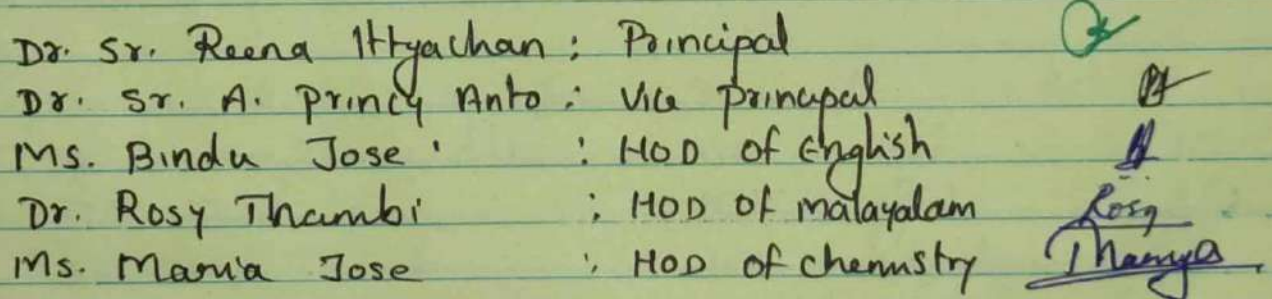 Dr. Sr. Reena Ittyachan : Principal
Dr. Sr. A. Princy Anto : Vice principal
Ms. Bindu Jose : HOD of English
Dr. Rosy Thambi : HOD of malayalam Rosy
Ms. Maria Jose : HOD of chemistry